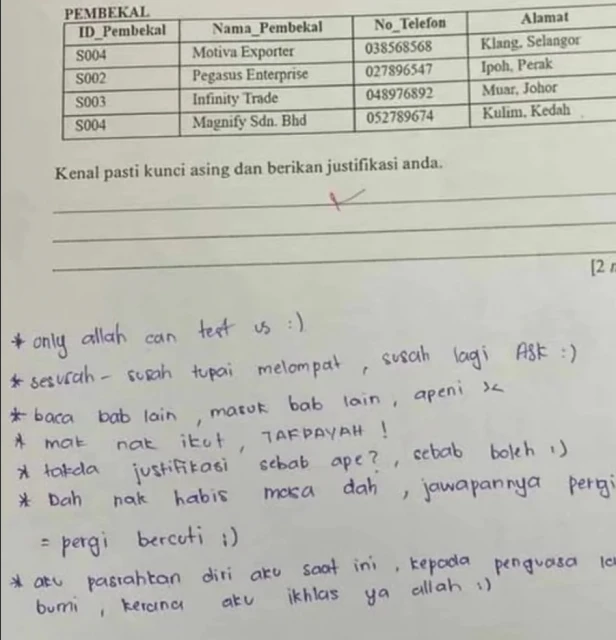 PEMBEKAL
ID_Pembekal Nama_Pembekal No_Telefon Alamat
S004 Motiva Exporter 038568568 Klang, Selangor
S002 Pegasus Enterprise 027896547 Ipoh, Perak
S003 Infinity Trade 048976892 Muar, Johor
S004 Magnify Sdn. Bhd 052789674 Kulim, Kedah
Kenal pasti kunci asing dan berikan justifikasi anda.
[2
* only allah can test us :)
* sesusah - susah tupai melompat , susah lagi Ask :)
* baca bab lain , masuk bab lain , apeni :<
* mak nak ikut , TAKPAYAH !
* takda justifikasi sebab ape? , sebab boleh :)
* Dah nak habis masa dah , jawapannya pergi
= pergi bercuti :)
* aku pasrahkan diri aku saat ini , kepada penguasa
bumi , kerana aku ikhlas ya allah :)